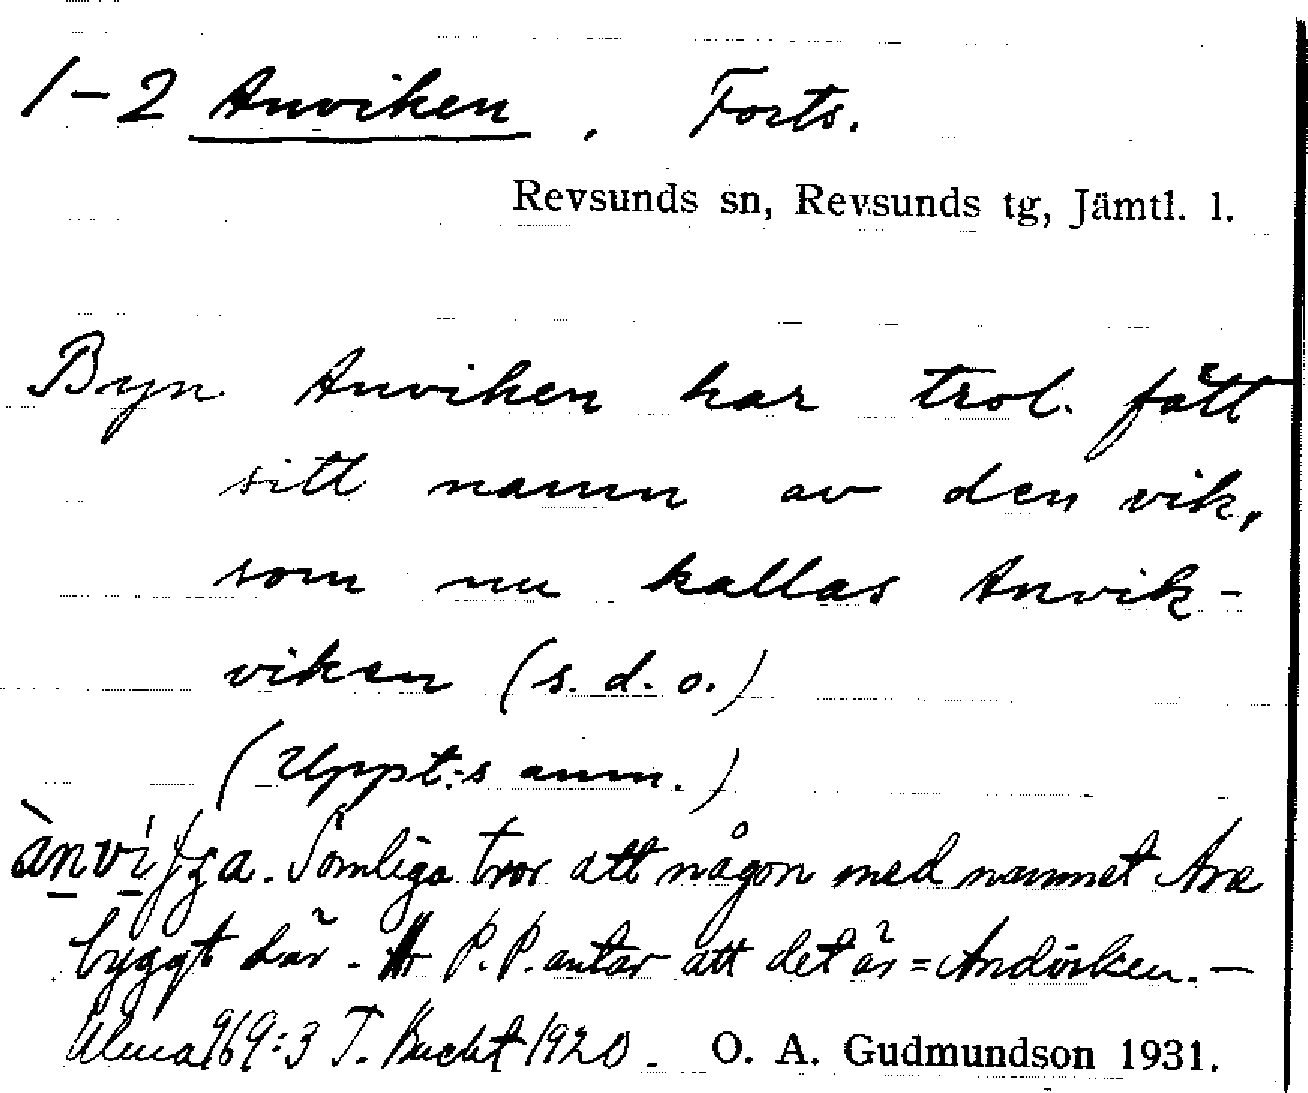 1-2 Anviken, Forts.
Revsunds sn, Revsunds tg, Jämtl. l.
Byn Anviken har trol. fått
sitt namn av den vik,
som nu kallas Anvik-
viken (s. d. o.)
(Uppt:s anm.)
Somliga tror att någon med namnet Ane
byggt där. Hr P. P. antar att det är =
Ulma 969:3 T. Bucht 1920. O. A. Gudmundson 1931.